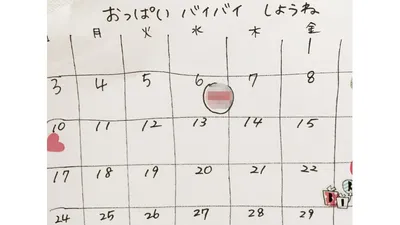 おっぱい バイバイ しようね
月 火 水 木 金
1
3 4 5 6 7 8
10 11 12 13 14 15
17 18 19 20 21 22
24 25 26 27 28 29